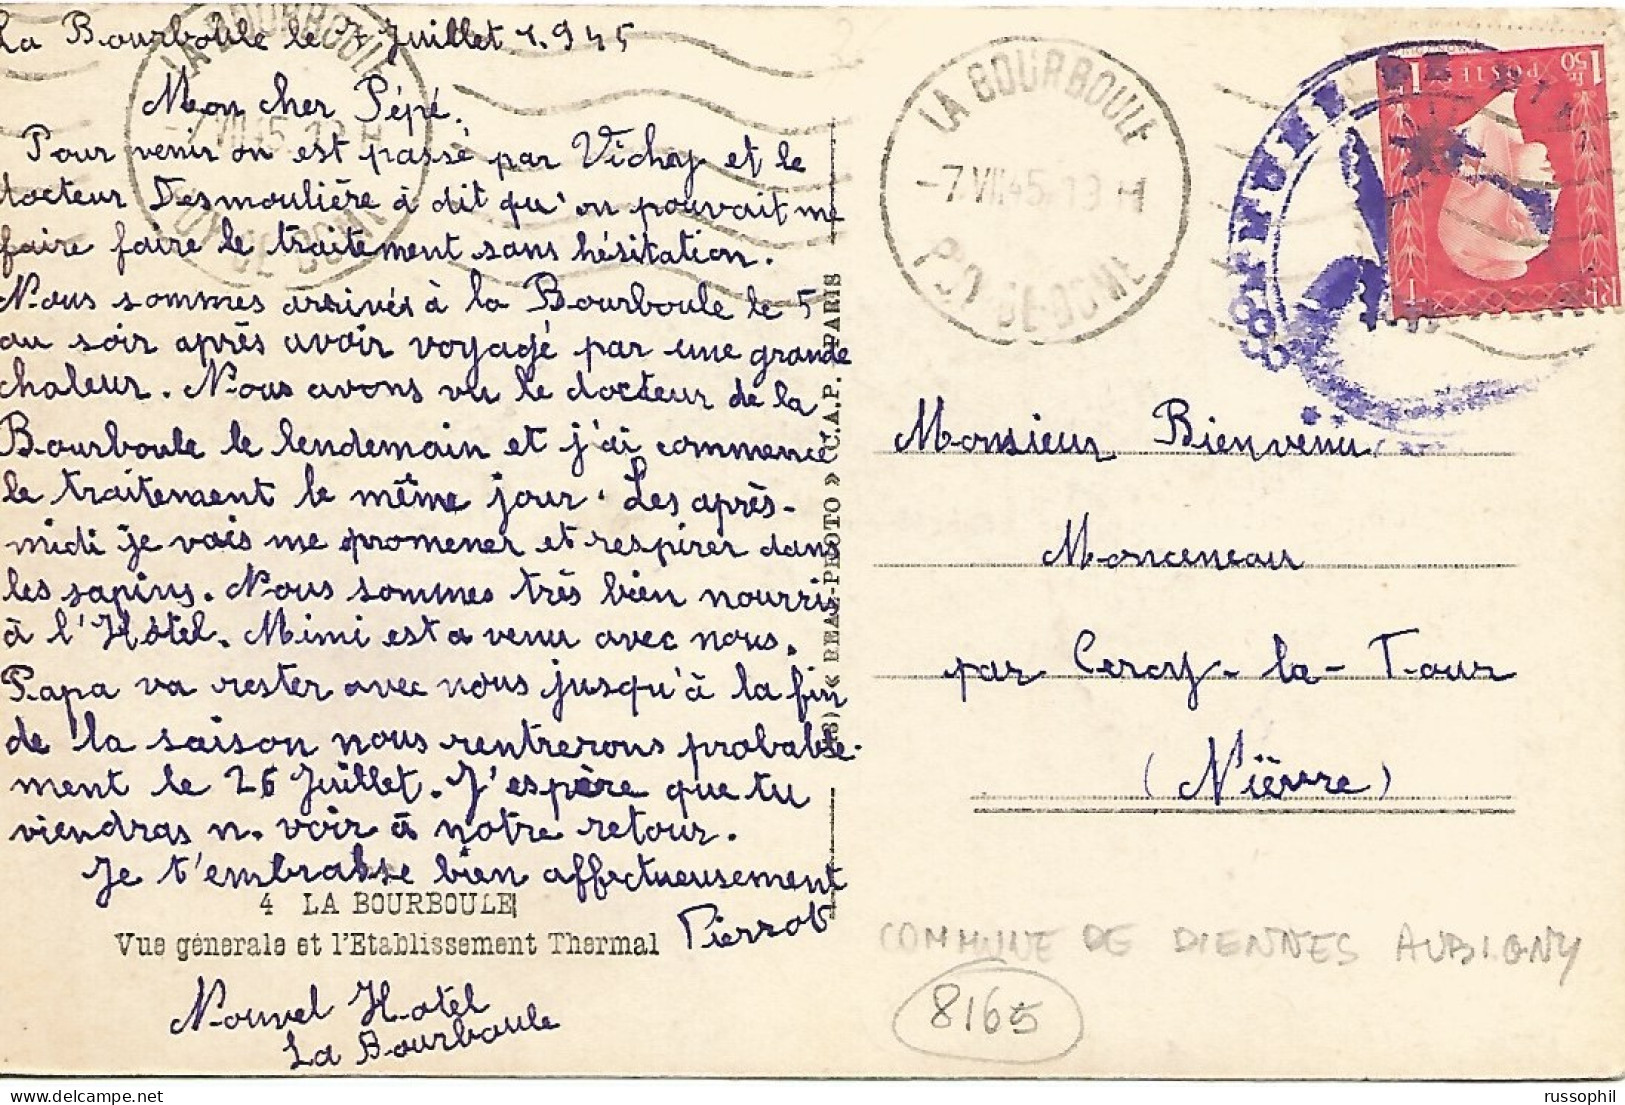 La Bourboule le 7 Juillet 1.945
Mon cher Pépé.
Pour venir on est passé par Vichy et le
docteur Desmoulière à dit qu'on pouvait me
faire faire le traitement sans hésitation.
Nous sommes arrivés à la Bourboule le 5
au soir après avoir voyagé par une grande
chaleur. Nous avons vu le docteur de la
Bourboule le lendemain et j'ai commencé
le traitement le même jour. Les après-
midi je vais me promener et respirer dans
les sapins. Nous sommes très bien nourris
à l'Hôtel. Mimi est a venu avec nous.
Papa va rester avec nous jusqu'à la fin
de la saison nous rentrerons probable-
ment le 26 Juillet. J'espère que tu
viendras n. voir à notre retour.
Je t'embrasse bien affectueusement
Pierrot
4 LA BOURBOULE
Vue générale et l'Etablissement Thermal
Nouvel Hotel
La Bourboule
« REAL-PHOTO » C.A.P. PARIS
LA BOURBOULE
-7 VII 45 13 H
PUY-DE-DOME
LA BOURBOULE
-7. VII. 45. 13 H
PUY-DE-DOME
POSTES
1 Fr 50
RF
Monsieur Bienvenu
Monceneau
par Cercy-la-Tour
(Nièvre)
COMMUNE DE DIENNES AUBIGNY
8165
russophil